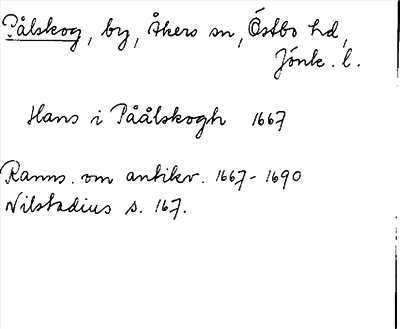 Pålskog, by, Åkers sn, Östbo hd,
Jönk. l.
Hans i Påålskogh 1667
Ranns. om antikv. 1667-1690
Nilstadius s. 167.